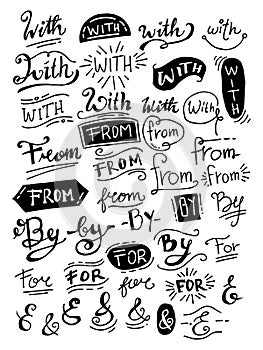 With WITH with with
With WITH WITH WITH
WITH With With With
From FROM from
FROM from from
FROM from BY By
By -by- -BY- By For
FOR
For FOR for FOR
& & & & & &